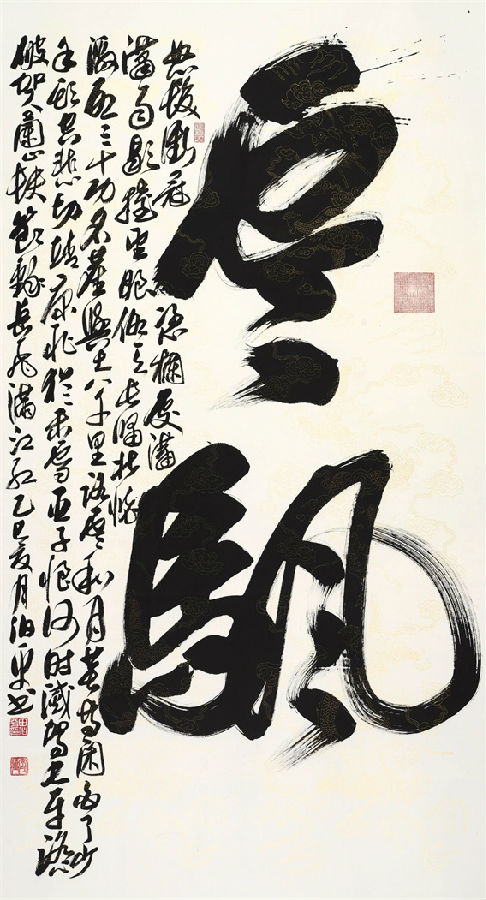 雲颿
怒髮衝冠憑欄處瀟
瀟雨歇擡望眼仰天長嘯壯懷
激烈三十功名塵與土八千里路雲和月莫等閑白了少
年頭空悲切靖康恥猶未雪臣子恨何時滅駕長車踏
破賀蘭山缺節錄岳飛滿江紅乙巳夏月伯書